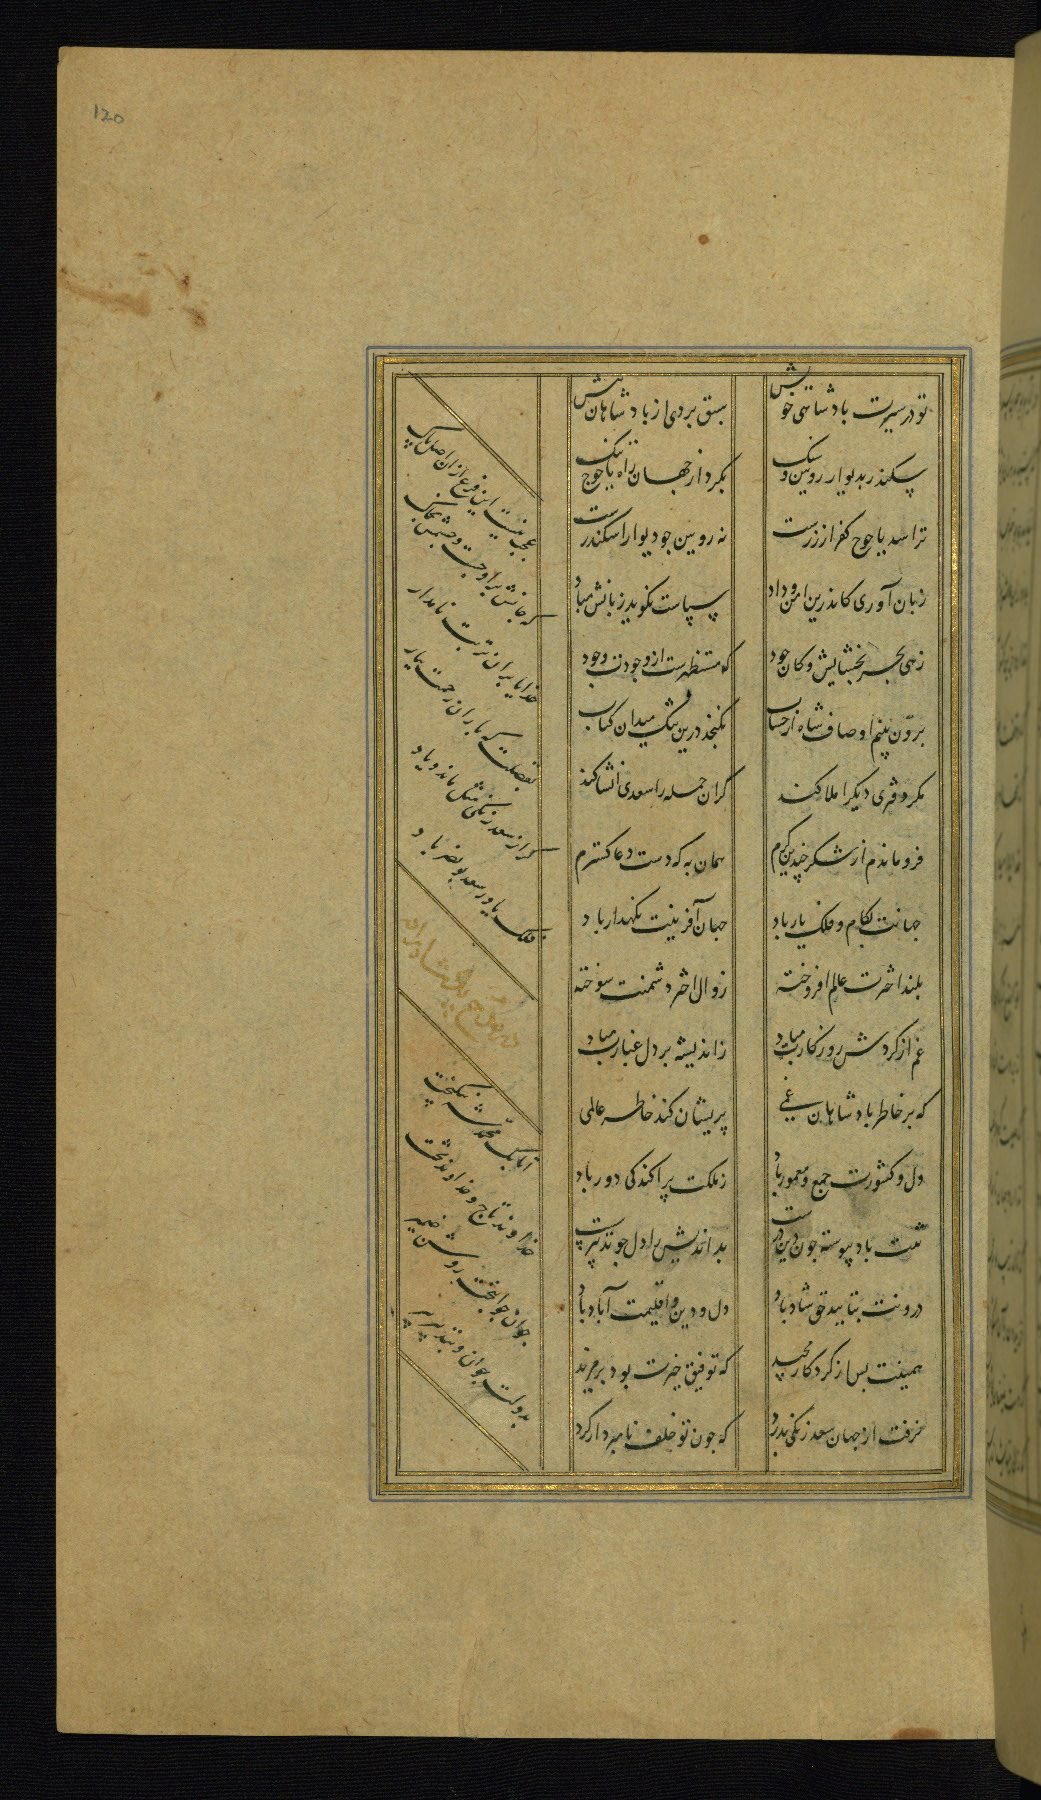 120
تو در سیرت بادشاهی خویش سبق بردی از بادشاهان پیش
سکندر بدیوار رویین و سنک بکرد از جهان راه یاجوج تنک
ترا سد یاجوج کفر از زرست نه رویین جو دیوار اسکندرست
زبان آوری کاندرین امن و داد سپاست نکوید زبانش مباد
زهی بحر بخشایش و کان جود که مستظهرست از وجودت وجود
برون بینم اوصاف شاه از حساب نکنجد درین تنک میدان کتاب
کر آن جمله را سعدی انشا کند
مکر دفتری دیکر املا کند
فرو ماندم از شکر چندین کرم همان به که دست دعا کسترم
جهانت بکام و فلک یار باد جهان آفرینت نکهدار باد
بلند اخترت عالم افروخته زوال اختر دشمنت سوخته
غم از کردش روزکارت مباد ز اندیشه بر دل غبارت مباد
که بر خاطر بادشاهان غمی پریشان کند خاطر عالمی
دل و کشورت جمع و معمور باد ز ملکت پراکندکی دور باد
تنت باد پیوسته جون دین درست بداندیش را دل جو تدبیر سست
درونت بتایید حق شاد باد دل و دین و اقلیمت آباد باد
همینت بس از کردکار مجید که توفیق خیرت بود بر مزید
نرفت از جهان سعد زنکی بدرد که جون تو خلف نامبردار کرد
عجب نیست این فرع ازان اصل پاک
که جانش بر اوجست و جسمش بخاک
خدایا بران تربت نامدار
بفضلت که باران رحمت ببار
کر از سعد زنکی مثل ماند و یاد
فلک یاور سعد بوبکر باد
اتابک محمد شه نیکبخت
خداوند تاج و خداوند تخت
جوان جوانبخت روشن ضمیر
بدولت جوان و بتدبیر پیر